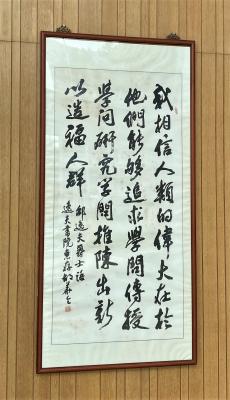 我相信人類的偉大在於
他們能夠追求學問傳授
學問研究學問推陳出新
以造福人群
邵逸夫爵士語
逸夫書院惠存